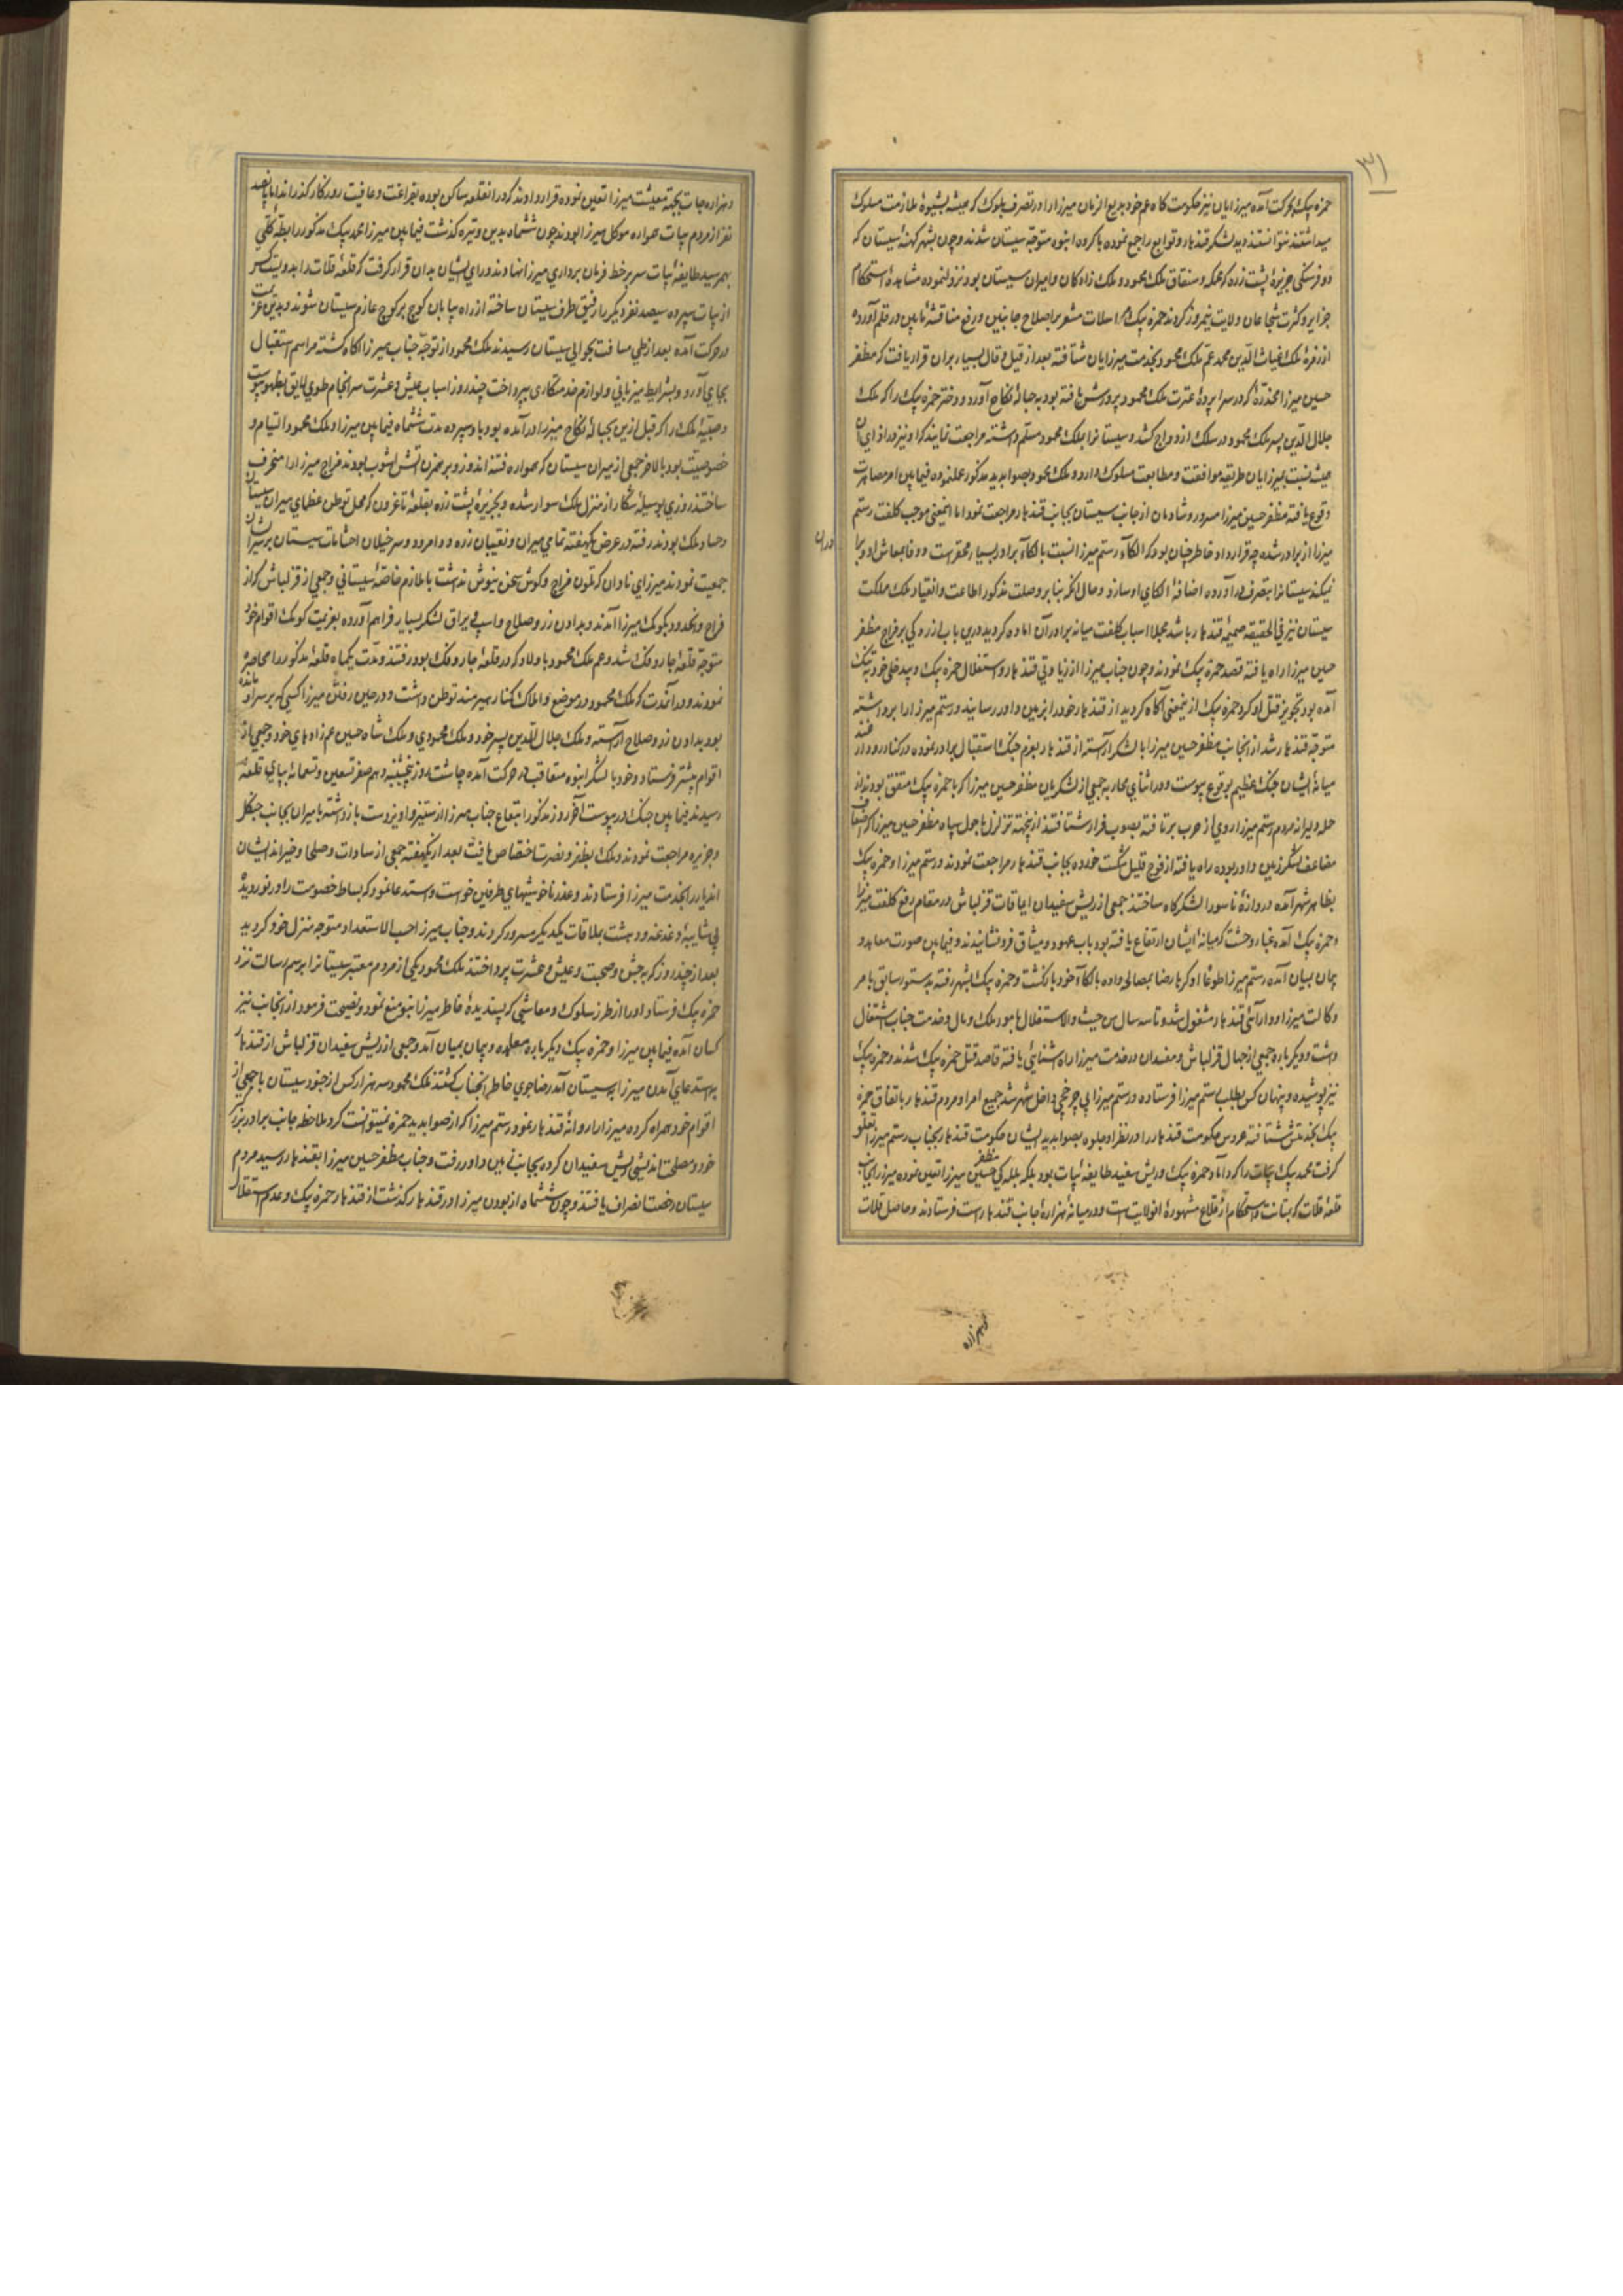 ۳۱
حمزه بیک بحرکت آمده میرزایان نیز حکومت کاه عم خود بدیع الزمان میرزا را در تصرف بلوک که همیشه بشیوهٔ ملازمت مسلوک
میداشتند نتوانستند دید لشکر قندهار و توابع را جمع نموده با کروه انبوه متوجه سیستان شدند و چون بشهر کهنهٔ سیستان که
دو فرسنکی جزیرهٔ پشت زده که محکمه و سقناق ملک محمود و ملک زادکان و امیران سیستان بود نزول نموده مشاهدهٔ استحکام
جزایر و کثرت شجاعان ولایت نیمروز کردند حمزه بیک مراسلات مشعر بر اصلاح جانبین و رفع مناقشهٔ مابین در قلم آورده
از زفرهٔ ملک غیاث الدین محمد عم ملک محمود بخدمت میرزایان شتافته بعد از قیل و قال بسیار بر آن قرار یافت که مظفر
حسین میرزا مخدرهٔ که در سرا پردهٔ عترت ملک محمود پرورش یافته بود به حبالهٔ نکاح آورد و دختر حمزه بیک را که ملک
جلال الدین پسر ملک محمود در سلک ازدواج کشد و سیستانرا بملک محمود مسلم داشته مراجعت نمایند که او نیز در ازای آن
همیشه نسبت بمیرزایان طریقه موافقت و مطابعت مسلوک دارد و ملک محمود بصوابدید مذکور عملنموده فیمابین امر مصاهرت
وقوع یافته مظفر حسین میرزا مسرور و شادمان از جانب سیستان بجانب قندهار مراجعت نمود اما اینمعنی موجب کلفت رستم
میرزا از برادر شده چه قرارداد خاطر چنان بود که الکاء رستم میرزا النسبت بالکاء برادر بسیار محقر است و وفا بمعاش او
نمیکند سیستانرا بتصرف در آورده اضافهٔ الکای او سازد و حال آنکه بنابر وصلت مذکور اطاعت و انقیاد ملک مملکت
سیستان نیز فی الحقیقه ضمیمهٔ قندهار باشد مجملا اسباب کلفت میانه برادران آماده کردید درین باب از روکی بر مزاج مظفر
حسین میرزا راه یافته قصد حمزه بیک نمودند و چون جناب میرزا از زیادتی قندهار و استقلال حمزه بیک و بیدخلی خود بتنک
آمده بود تجویز قتل او کرد حمزه بیک از ینمعنی آکاه کردید از قندهار خود را بزمین داور رسانید و رستم میرزا را برداشته
متوجه قندهار شد از انجانب مظفر حسین میرزا با لشکر آراسته از قندهار بعزم جنک استقبال برادر نموده در کنار رود
میانهٔ ایشان جنک عظیم بوقوع پیوست و در اثنای محاربه جمعی از لشکریان مظفر حسین میرزا که با حمزه بیک متفق بودند از
حمله دلیرانه مردم رستم میرزا روی از حرب بر تافته بصوب فرار شتافتند ازینجهت تزلزل باحوال سپاه مظفر حسین میرزا که
مضاعف لشکر زمین داور بوده راه یافته از فوج قلیل شکست خورده بجانب قندهار مراجعت نمودند و رستم میرزا و حمزه بیک
بظاهر شهر آمده دروازهٔ ماسور الشکرکاه ساختند جمعی از ریش سفیدان ایماقات قزلباش در مقام رفع کلفت میرزا
و حمزه بیک آمده غبار وحشت که میانهٔ ایشان ارتفاع یافته بود باب عهود و میثاق فرو نشانیدند و فیمابین صورت معاهده
پیمان بمیان آمده رستم میرزا طوعا او کرها رضا بمصالحه داده بالکاء خود بازکشت و حمزه بیک بشهر رفته بدستور سابق بامر
وکالت میرزا و دارائی قندهار مشغول شد و تا سه سال من حیث والاستقلال بامور ملک و مال و خدمت جناب اشتغال
داشت و دیکر باره جمعی از جهال قزلباش و مفسدان در خدمت میرزا راه شنائی یافته قاصد قتل حمزه بیک شدند و حمزه بیک
نیز پوشیده و پنهان کس بطلب رستم میرزا فرستاده و رستم میرزا بی چرخچی داخل شهر شد جمیع امرا و مردم قندهار باتفاق حمزه
بیک بخدمتش شتافته عروس حکومت قندهار را در نظر او جلوه بصوابدید ایشان حکومت قندهار بجناب رستم میرزا تعلق
کرفت محمد بیک بیات را که داماد حمزه بیک و ریش سفید طایفهٔ بیات بود بلکه بلله کی مظفر حسین میرزا تعین نموده میرزا را بجانب
قلعهٔ قلات که بمتانت و استحکام از قلاع مشهورهٔ انولایت است و در میانهٔ هزارهٔ جانب قندهار است فرستادند و حاصل قلات
وهزاره
وهزاره جات بجهة معیشت میرزا تعین نموده قرار دادند که در انقلعه ساکن بوده بفراغت و عافیت روزکار کذراند اما پانصد
نفر از مردم بیات همواره موکل میرزا بودند چون ششماه بدین وتیره کذشت فیمابین میرزا محمد بیک مذکور رابطهٔ کلی
بهمرسید طایفهٔ بیات سر بر خط فرمان برداری میرزا نهادند و رای ایشان بدان قرار کرفت که قلعهٔ قلات را بدویست کس
از بیات سپرده سیصد نفر دیکر را رفیق طرف سیستان ساخته از راه بیابان کوچ بر کوچ عازم سیستان شوند و بدین عزیمت
در حرکت آمده بعد از طی مسافت بحوالی سیستان رسیدند ملک محمود از توجه جناب میرزا آکاه کشته مراسم استقبال
بجای آورد و بشرایط میزبانی و لوازم خدمتکاری بپرداخت چند روز اسباب عیش و عشرت سرانجام طوی لایق بظهور پیوست
و صبیهٔ ملک را که قبل ازین بحبالهٔ نکاح میرزا در آمده بود باو سپرده مدت ششماه فیمابین میرزا و ملک محمود التیام و
خصوصیت بود بالاخر جمعی از میران سیستان که همواره فتنه اندوز و بر همزن آتش آشوب بودند مزاج میرزا را منحرف
ساختند روزی بوسیلهٔ شکار از منزل ملک سوار شده و بجزیرهٔ پشت زده بقلعهٔ تاغرون که محل توطن عظمای میران سیستان
و حساد ملک بودند رفته در عرض یکهفته تمامی میران و نقیبان زره و رامرود و سرخیلان احشامات سیستان بر سر ایشان
جمعیت نمودند میرزای نادان که تلون مزاج و کوش سخن نیوش نداشت با ملازم خاصهٔ سیستانی و جمعی از قزلباش که از
فراح و نخدود بکومک میرزا آمدند و بدادن زر و صلاح و اسپ و یراق لشکر بسیار فراهم آورده بعزیمت کومک اقوام خود
متوجه قلعهٔ جارونک شد و عم ملک محمود با ولاد که در قلعهٔ جارونک بود رفتند و مدت یکماه قلعهٔ مذکور را محاصره
نمودند و در آنمدت که ملک محمود در موضع و املاک کنار هیرمند توطن داشت و در حین رفتن میرزا کسی که بر سر او مانده
بود بدادن زر و صلاح آراسته و ملک جلال الدین پسر خود و ملک محمودی و ملک شاه حسین عم زادهای خود و جمعی از
اقوام پیشتر فرستاد و خود با لشکر انبوه متعاقب در حرکت آمده چاشت روز پنجشنبه دهم صفر تسعین و تسعمائهٔ بپای قلعه
رسیدند فیمابین جنک در پیوست آخر روز مذکور ابتقاع جناب میرزا از ستیز و آویز دست باز داشته با میران بجانب جنکل
و جزیره مراجعت نمودند و ملک بظفر و نصرت اختصاص یافت بعد از یکهفته جمعی از سادات و صلحا و خیر اندایشان
اندیار را بخدمت میرزا فرستادند و عذر ناخوشیهای طرفین خواست و استدعا نمود که بساط خصومت را در نوردید
بی شایبهٔ دغدغه و دهشت بملاقات یکدیکر مسرور کردند و جناب میرزا حسب الاستدعا و متوجه منزل خود کردید
بعد از چند روز که به جشن و صحبت و عیش و عشرت پرداختند ملک محمود یکی از مردم معتبر سیستانرا برسم رسالت نزد
حمزه بیک فرستاد او را از طرز سلوک و معاشی که پسندیدهٔ خاطر میرزا نبود منع نمود و نصیحت فرمود از انجانب نیز
کسان آمده فیمابین میرزا و حمزه بیک دیکر باره معاهده و پیمان بمیان آمد و جمعی از ریش سفیدان قزلباش از قندهار
باستدعای آمدن میرزا بسیستان آمد رضا جوی خاطر انجناب کشتند ملک محمود سه هزار کس از جنود سیستان با جمعی از
اقوام خود همراه کرده میرزا را روانهٔ قندهار نمود رستم میرزا که از صوابدید حمزه نمیتوانست کرد ملاحظه جانب برادر بزرک
خود و مصلحت اندیشی ریش سفیدان کرده بجانب زمین داور رفت و جناب مظفر حسین میرزا بقندهار رسید مردم
سیستان رخصت انصراف یافتند و چون ششماه از بودن میرزا در قندهار کذشت از قندهار حمزه بیک و عدم استقلال